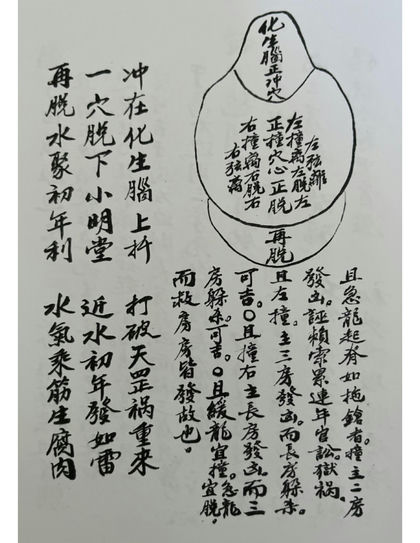 化生腦正冲穴
左弦離
左撞离左脫左
正撞穴心正脫
右撞离右脫右
右弦离
再脫
且急龍起脊如拖鎗者撞主二房
發凶。誣賴索累連年官訟獄禍。
且左撞。主三房發凶。而長房躲杀。
可吉。〇且撞右主長房發凶。而三
房躲杀。可吉。〇且緩龍宜撞。急龍宜脫。
而救房房皆發故也。
冲在化生腦上扦 打破天罡禍重來
一穴脫下小明堂 近水初年發如雷
再脫水聚初年利 水氣乘筋生腐肉